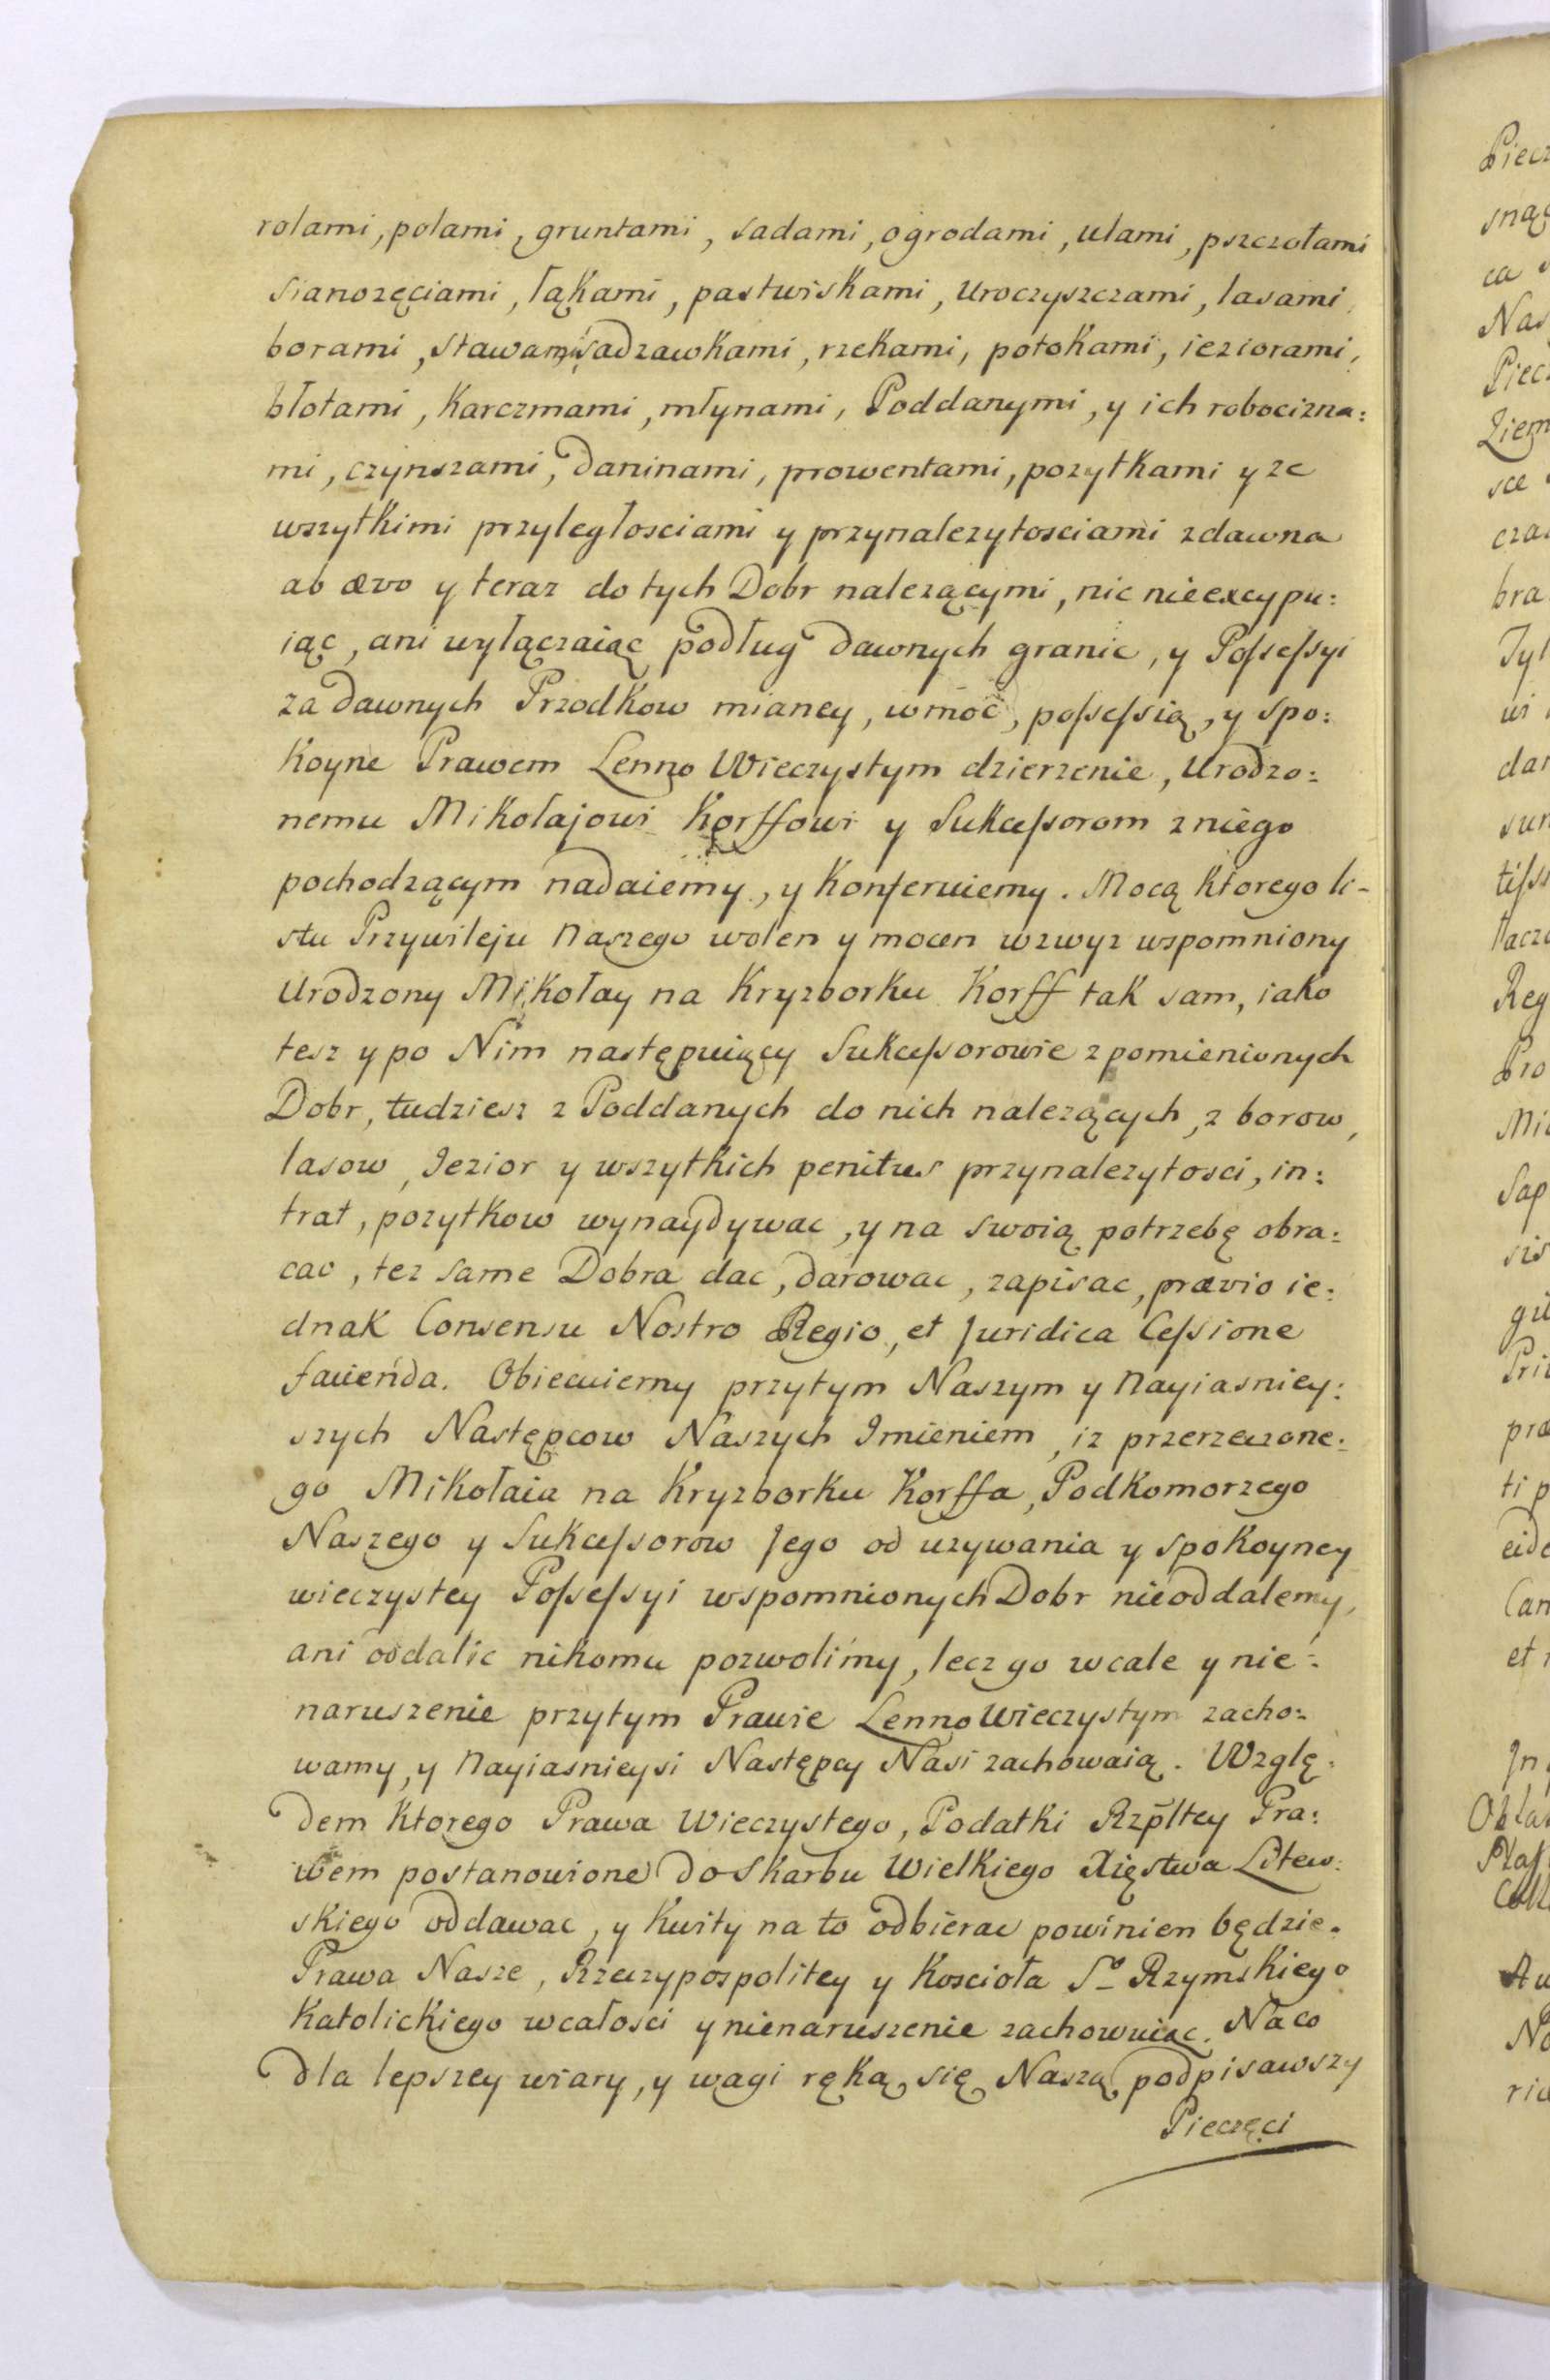 rolami, polami, gruntami, sadami, ogrodami, ulami, pszczołami
sianozęciami, łąkami, pastwiskami, uroczyszczami, lasami,
borami, stawami, sadzawkami, rzekami, potokami, ieziorami,
błotami, Karczmami, młynami, Poddanymi, y ich robocizna:
mi, czynszami, daninami, prowentami, pozytkami y ze
wszytkimi przyległosciami y przynalezytosciami zdawna
ab ævo y teraz do tych Dobr nalezącymi, nic nieexcypu:
iąc, ani wyłączaiąc podług dawnych granic, y Poſseſsyi
za dawnych Przodkow mianey, w moc, poſseſsią, y spo:
Koyne Prawem Lenno Wieczystym dzierzenie, Urodzo:
nemu Mikołajowi Korffowi y Sukceſsorom z niego
pochodzącym nadaiemy, y Konferuiemy. Mocą Ktorego li-
stu Przywileju Naszego wolen y mocen wzwyz wspomniony
Urodzony Mikołay na Kryzborku Korff tak sam, iako
tesz y po Nim następuiący Sukceſsorowie z pomienionych
Dobr, tudziesz z Poddanych do nich nalezących, z borow,
lasow, Jezior y wszytkich penitus przynalezytosci, in:
trat, pozytkow wynaydywac, y na swoią potrzebę obra:
cac, tez same Dobra dac, darowac, zapisac, prævio ie:
dnak Consensu Nostro Regio, et Juridica Ceſsione
facienda. Obiecuiemy przytym Naszym y Nayiasniey:
szych Następcow Naszych Imieniem, iz przerzeczone:
go Mikołaia na Kryzborku Korffa, Podkomorzego
Naszego y Sukceſsorow Jego od uzywania y spokoyney
wieczystey Poſseſsyi wspomnionych Dobr nieoddalemy,
ani oddalic nikomu pozwolimy, lecz go wcale y nie:
naruszenie przytym Prawie Lenno Wieczystym zacho:
wamy, y Nayiasnieysi Następcy Nasi zachowaią. Wzglę:
dem Ktorego Prawa Wieczystego, Podatki Rzpltey Pra:
wem postanowione do Skarbu Wielkiego Xięstwa Litew:
skiego oddawac, y Kwity na to odbierac powinien będzie.
Prawa Nasze, Rzeczypospolitey y Koscioła Sº Rzymskiego
Katolickiego wcałosci y nienaruszenie zachowuiąc. Na co
dla lepszey wiary, y wagi ręką się Naszą podpisawszy
Pieczęci